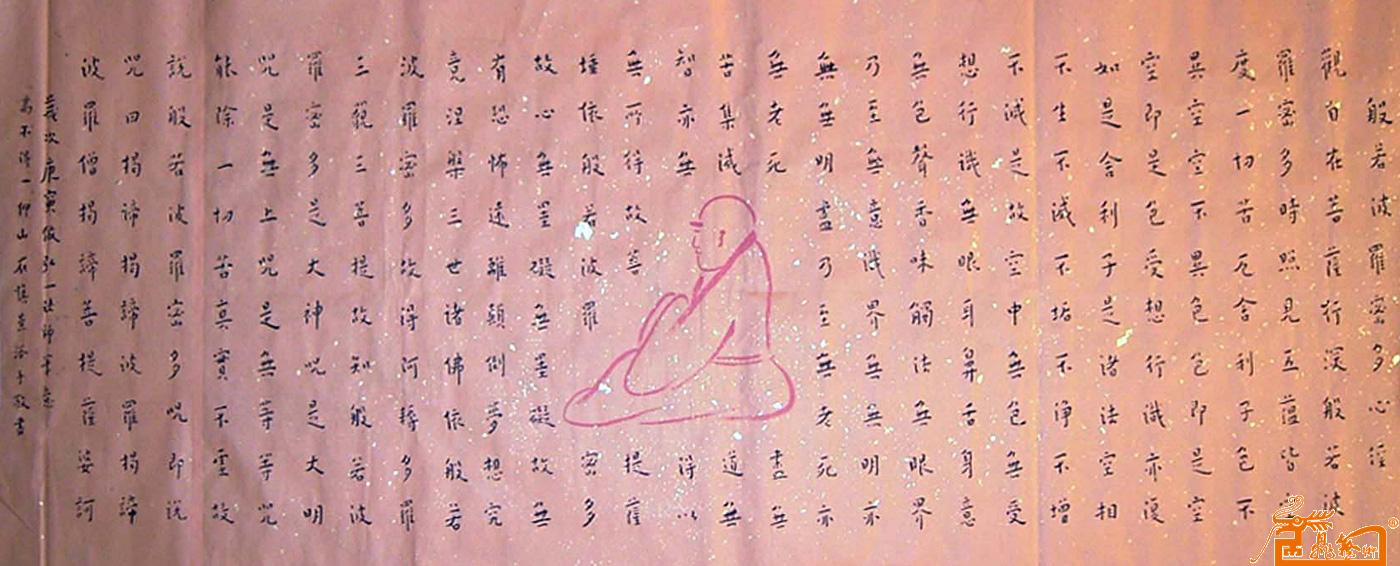 般若波羅密多心經
觀自在菩薩行深般若波
羅密多時照見五蘊皆空
度一切苦厄舍利子色不
異空空不異色色即是空
空即是色受想行識亦復
如是舍利子是諸法空相
不生不滅不垢不淨不增
不減是故空中無色無受
想行識無眼耳鼻舌身意
無色聲香味觸法無眼界
乃至無意識界無無明亦
無無明盡乃至無老死亦
無老死盡無
苦集滅道無
智亦無得以
無所得故菩提薩
埵依般若波羅密多
故心無罣礙無罣礙故無
有恐怖遠離顛倒夢想究
竟涅槃三世諸佛依般若
波羅密多故得阿耨多羅
三藐三菩提故知般若波
羅密多是大神咒是大明
咒是無上咒是無等等咒
能除一切苦真實不虛故
說般若波羅密多咒即說
咒曰揭諦揭諦波羅揭諦
波羅僧揭諦菩提薩婆訶
歲次庚寅倣弘一法師筆意
敬書